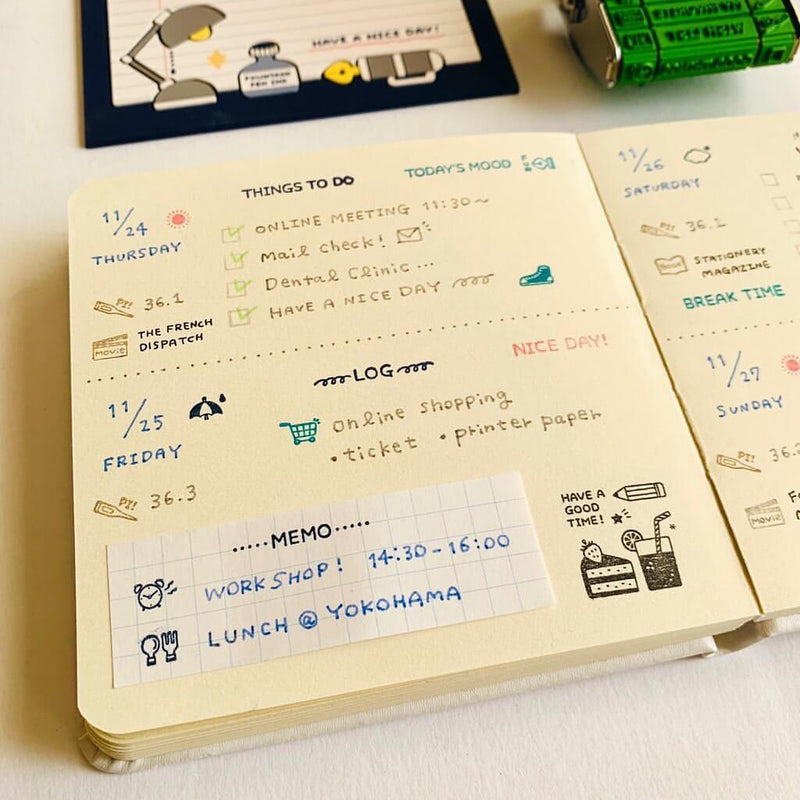 HAVE A NICE DAY!
FOUNTAIN
PEN INK
THINGS TO DO
TODAY'S MOOD
11/24
THURSDAY
PI! 36.1
MOVIE
THE FRENCH
DISPATCH
ONLINE MEETING 11:30~
Mail check!
Dental Clinic ...
HAVE A NICE DAY
11/25
FRIDAY
PI! 36.3
LOG
NICE DAY!
online shopping
•ticket •printer paper
·····MEMO·····
WORKSHOP! 14:30-16:00
LUNCH @ YOKOHAMA
HAVE A
GOOD
TIME!
11/26
SATURDAY
PI! 36.1
STATIONERY
MAGAZINE
BREAK TIME
11/27
SUNDAY
PI! 36.
MOVIE